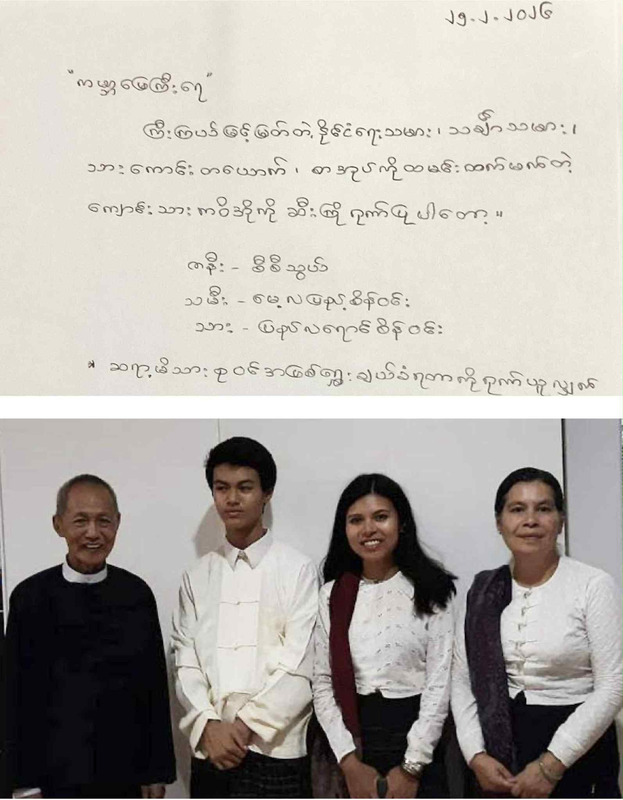 ၂၅.၂.၂၀၂၆
"ကမ္ဘာမြေကြီးရေ"
ကြီးကြပ်မြင့်မြတ်တဲ့ နိုင်ငံရေးသမား ၊ သင်္ချာသမား ၊
သားကောင်း တယောက် ၊ စာအုပ်ကို ထမင်းထက်မက်တဲ့
ကျောင်းသား ကဗိအိုကို ဆီးကြို ဂုဏ်ပြုပါတော့ ။
ဇနီး - စီစီသွယ်
သမီး - မေ့လပြည့်စိန်ဝင်း
သား - ပြည်လရောင်စိန်ဝင်း
* ဆရာ့မိသားစုဝင်အဖြစ်ရွေးချယ်ခံရတာကို ဂုဏ်ယူလျှက်